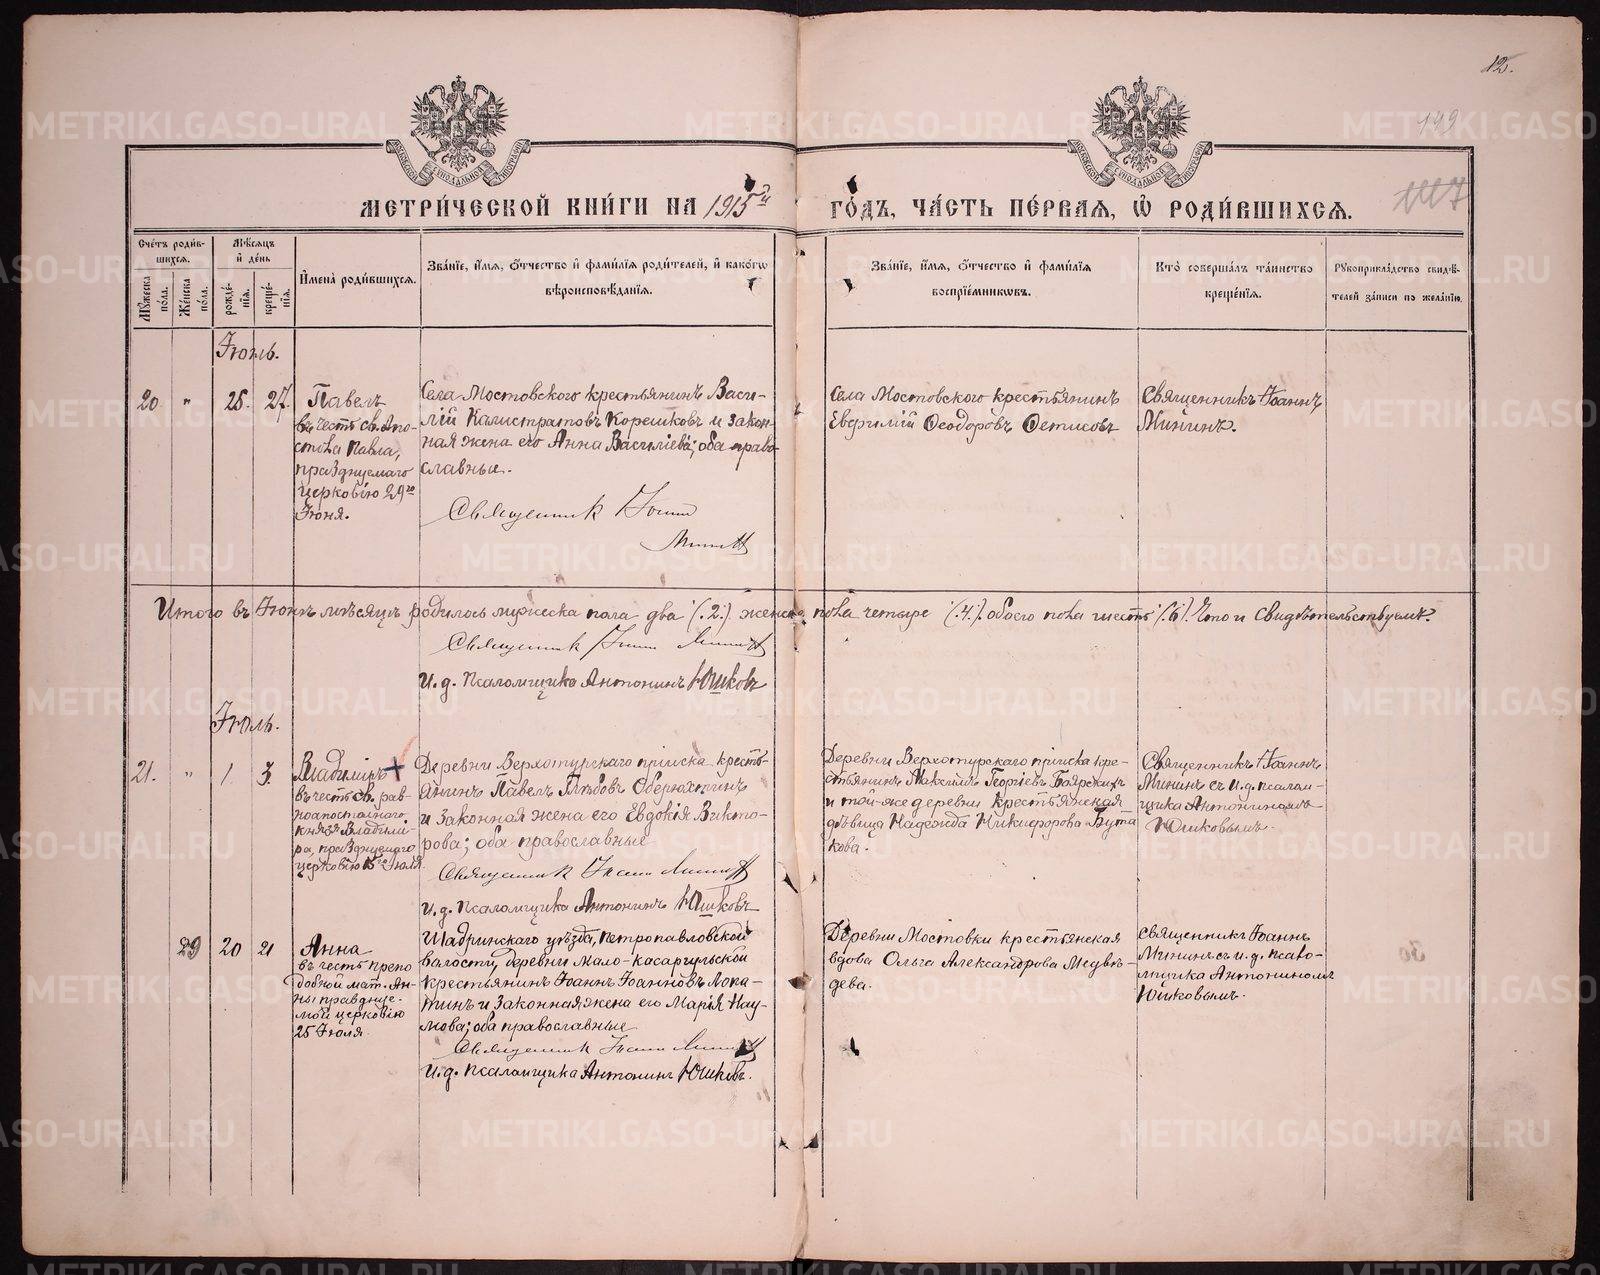 12.
149
МЕТРИ́ЧЕСКОЙ КНИ́ГИ НА 1915й ГО́ДЪ, ЧА́СТЬ ПЕ́РВАЯ, Ѡ РОДИ́ВШИХСЯ.
Сче́тъ роди́в-
шихся.
Му́жеска по́ла.
Же́нска по́ла.
Мѣ́сяцъ
и де́нь
рожде́-
нія.
креще́-
нія.
И́мена роди́вшихся.
Зва́ніе, и́мя, о́тчество и фами́лія роди́телей, и како́гѡ
вѣроисповѣ́данія.
Зва́ніе, и́мя, о́тчество и фами́лія
воспріе́мникѡвъ.
Кто̀ соверша́лъ та́инство
креще́нія.
Рукоприкла́дство свидѣ́-
телей за́писи по жела́нію.
Іюнь.
20 " 25. 27.
Павелъ
въ честь св. Апо-
стола Павла,
празднуемаго
церковію 29го
Іюня.
Села Мостовского крестьянинъ Васи-
лій Калистратовъ Корешковъ и закон-
ная жена его Анна Васильева; оба право-
славные.
Священникъ Іоаннъ
Мининъ
Села Мостовского крестьянинъ
Евфимій Ѳеодоровъ Ѳетисовъ
Священникъ Іоаннъ
Мининъ.
Итого въ Іюнѣ мѣсяцѣ родилось мужеска пола два (.2.) женска пола четыре (.4.) обоего пола шесть (.6.) Что и свидѣтельствуемъ.
Священникъ Іоаннъ Мининъ
И. д. Псаломщика Антонинъ Юшковъ
Іюль.
21. " 1. 3.
Владиміръ +
въ честь св. рав-
ноапостольнаго
князя Владимі-
ра, празднуемаго
церковію 15го Іюля
Деревни Верхотурскаго пріиска кресть-
янинъ Павелъ Глѣбовъ Оберюхтинъ
и законная жена его Евдокія Викто-
рова; оба православные
Священникъ Іоаннъ Мининъ
И. д. Псаломщика Антонинъ Юшковъ
Деревни Верхотурскаго пріиска кре-
стьянинъ Максимъ Георгіевъ Боярскихъ
и той-же деревни крестьянская
дѣвица Надежда Никифорова Бута
кова.
Священникъ Іоаннъ
Мининъ съ И.д. псалом-
щика Антониномъ
Юшковымъ.
29 20 21
Анна
въ честь препо
добной мат. Ан-
ны празднуе-
мой церковію
25 Іюля.
Шадринскаго уѣзда, Петропавловской
волости, деревни Мало-касаргульской
крестьянинъ Іоаннъ Іоанновъ Лопа-
тинъ и законная жена его Марія Нау-
мова; оба православные
Священникъ Іоаннъ Мининъ
И.д. Псаломщика Антонинъ Юшковъ.
Деревни Мостовки крестьянская
вдова Ольга Александрова Медвѣ-
дева.
Священникъ Іоаннъ
Мининъ съ и.д. псало-
мщика Антониномъ
Юшковымъ.
METRIKI.GASO-URAL.RU